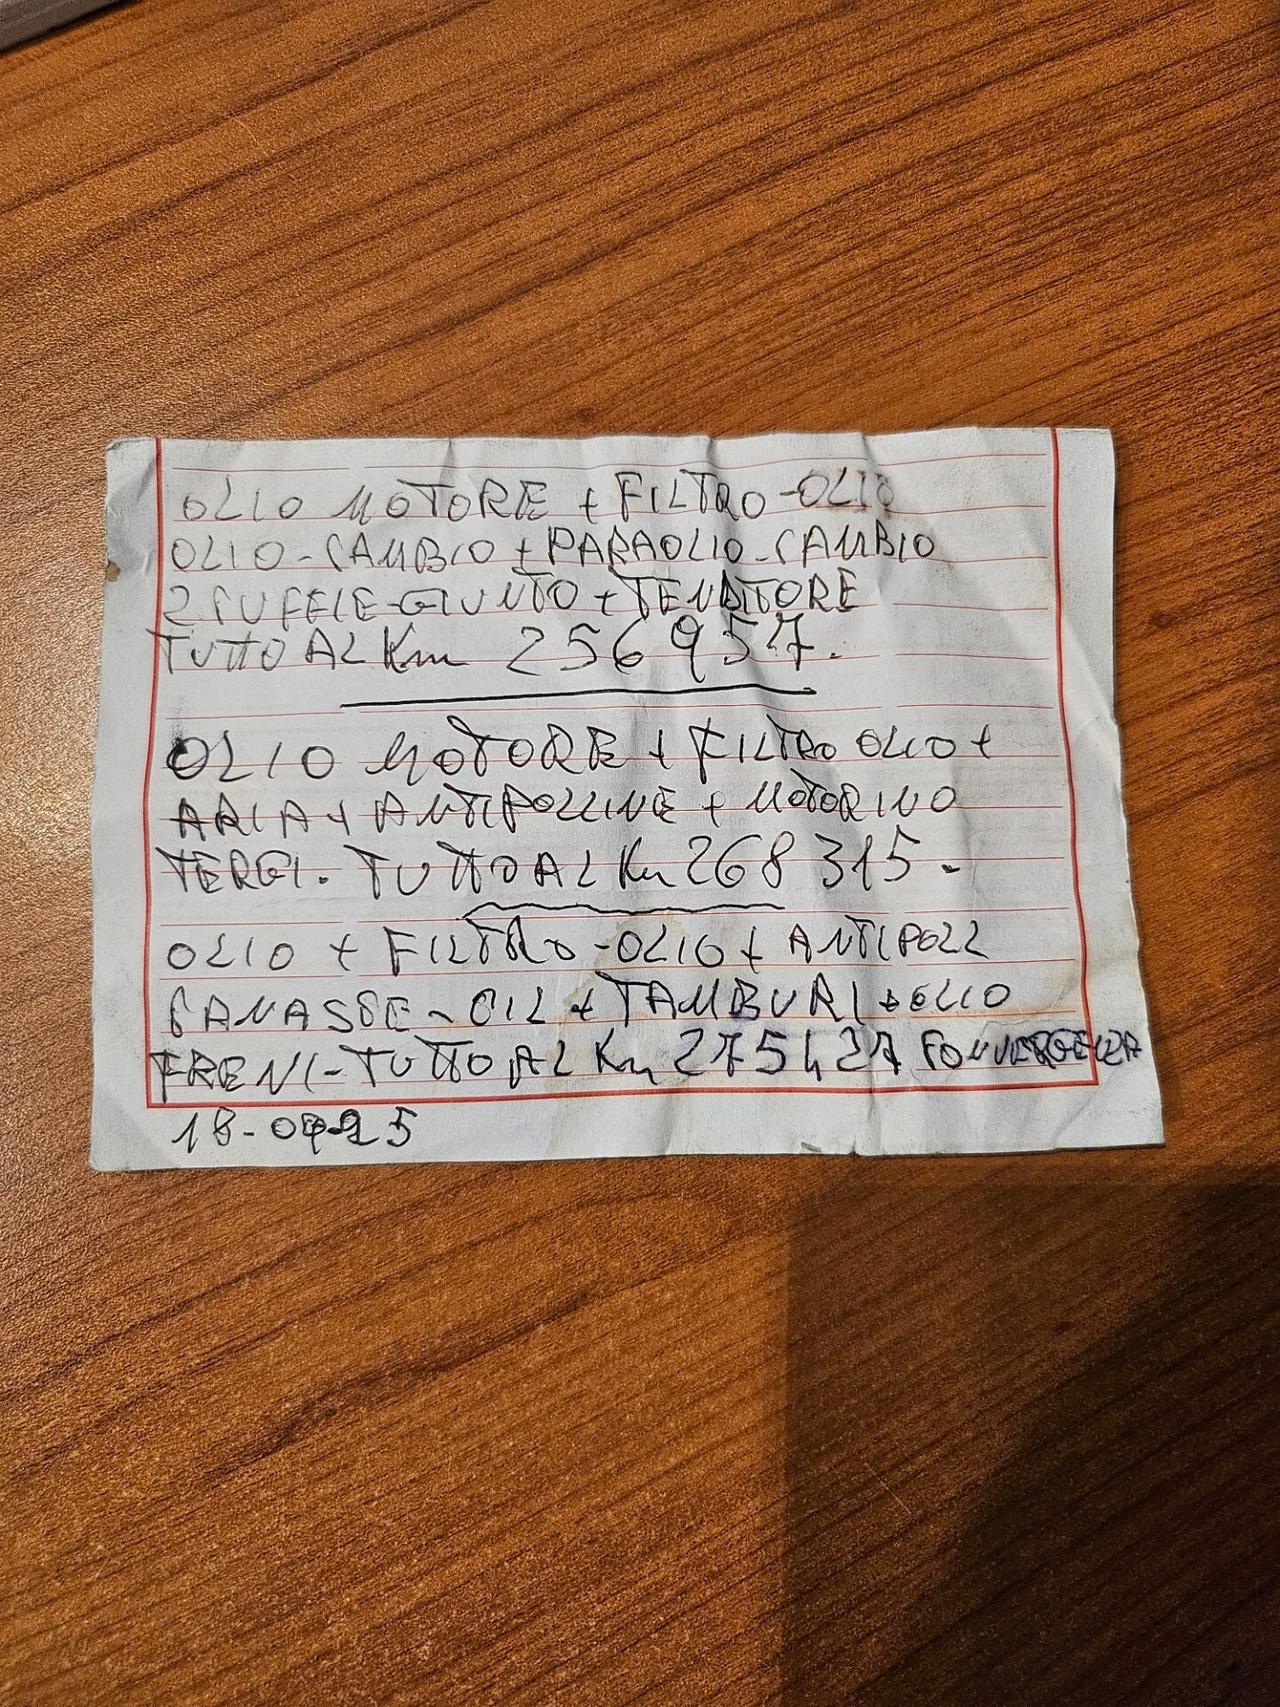 OLIO MOTORE + FILTRO-OLIO
OLIO-CAMBIO + PARAOLIO-CAMBIO
2 CUFFIE-GIUNTO + TENDITORE
TUTTO AL Km 256957.
OLIO MOTORE + FILTRO OLIO +
ARIA + ANTIPOLLINE + MOTORINO
TERGI. TUTTO AL Km 268315.
OLIO + FILTRO-OLIO + ANTIPOLL
GANASSE-CIL + TAMBURI + OLIO
FRENI-TUTTO AL Km 275427 CONVERGENZA
18-09-25